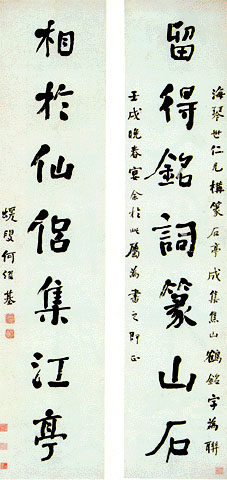 海琴世仁兄構篆石亭成集焦山鶴銘字為聯
留得銘詞篆山石
壬戌晚春宴余於此屬為書之即正
相於仙侶集江亭
蝯叟何紹基